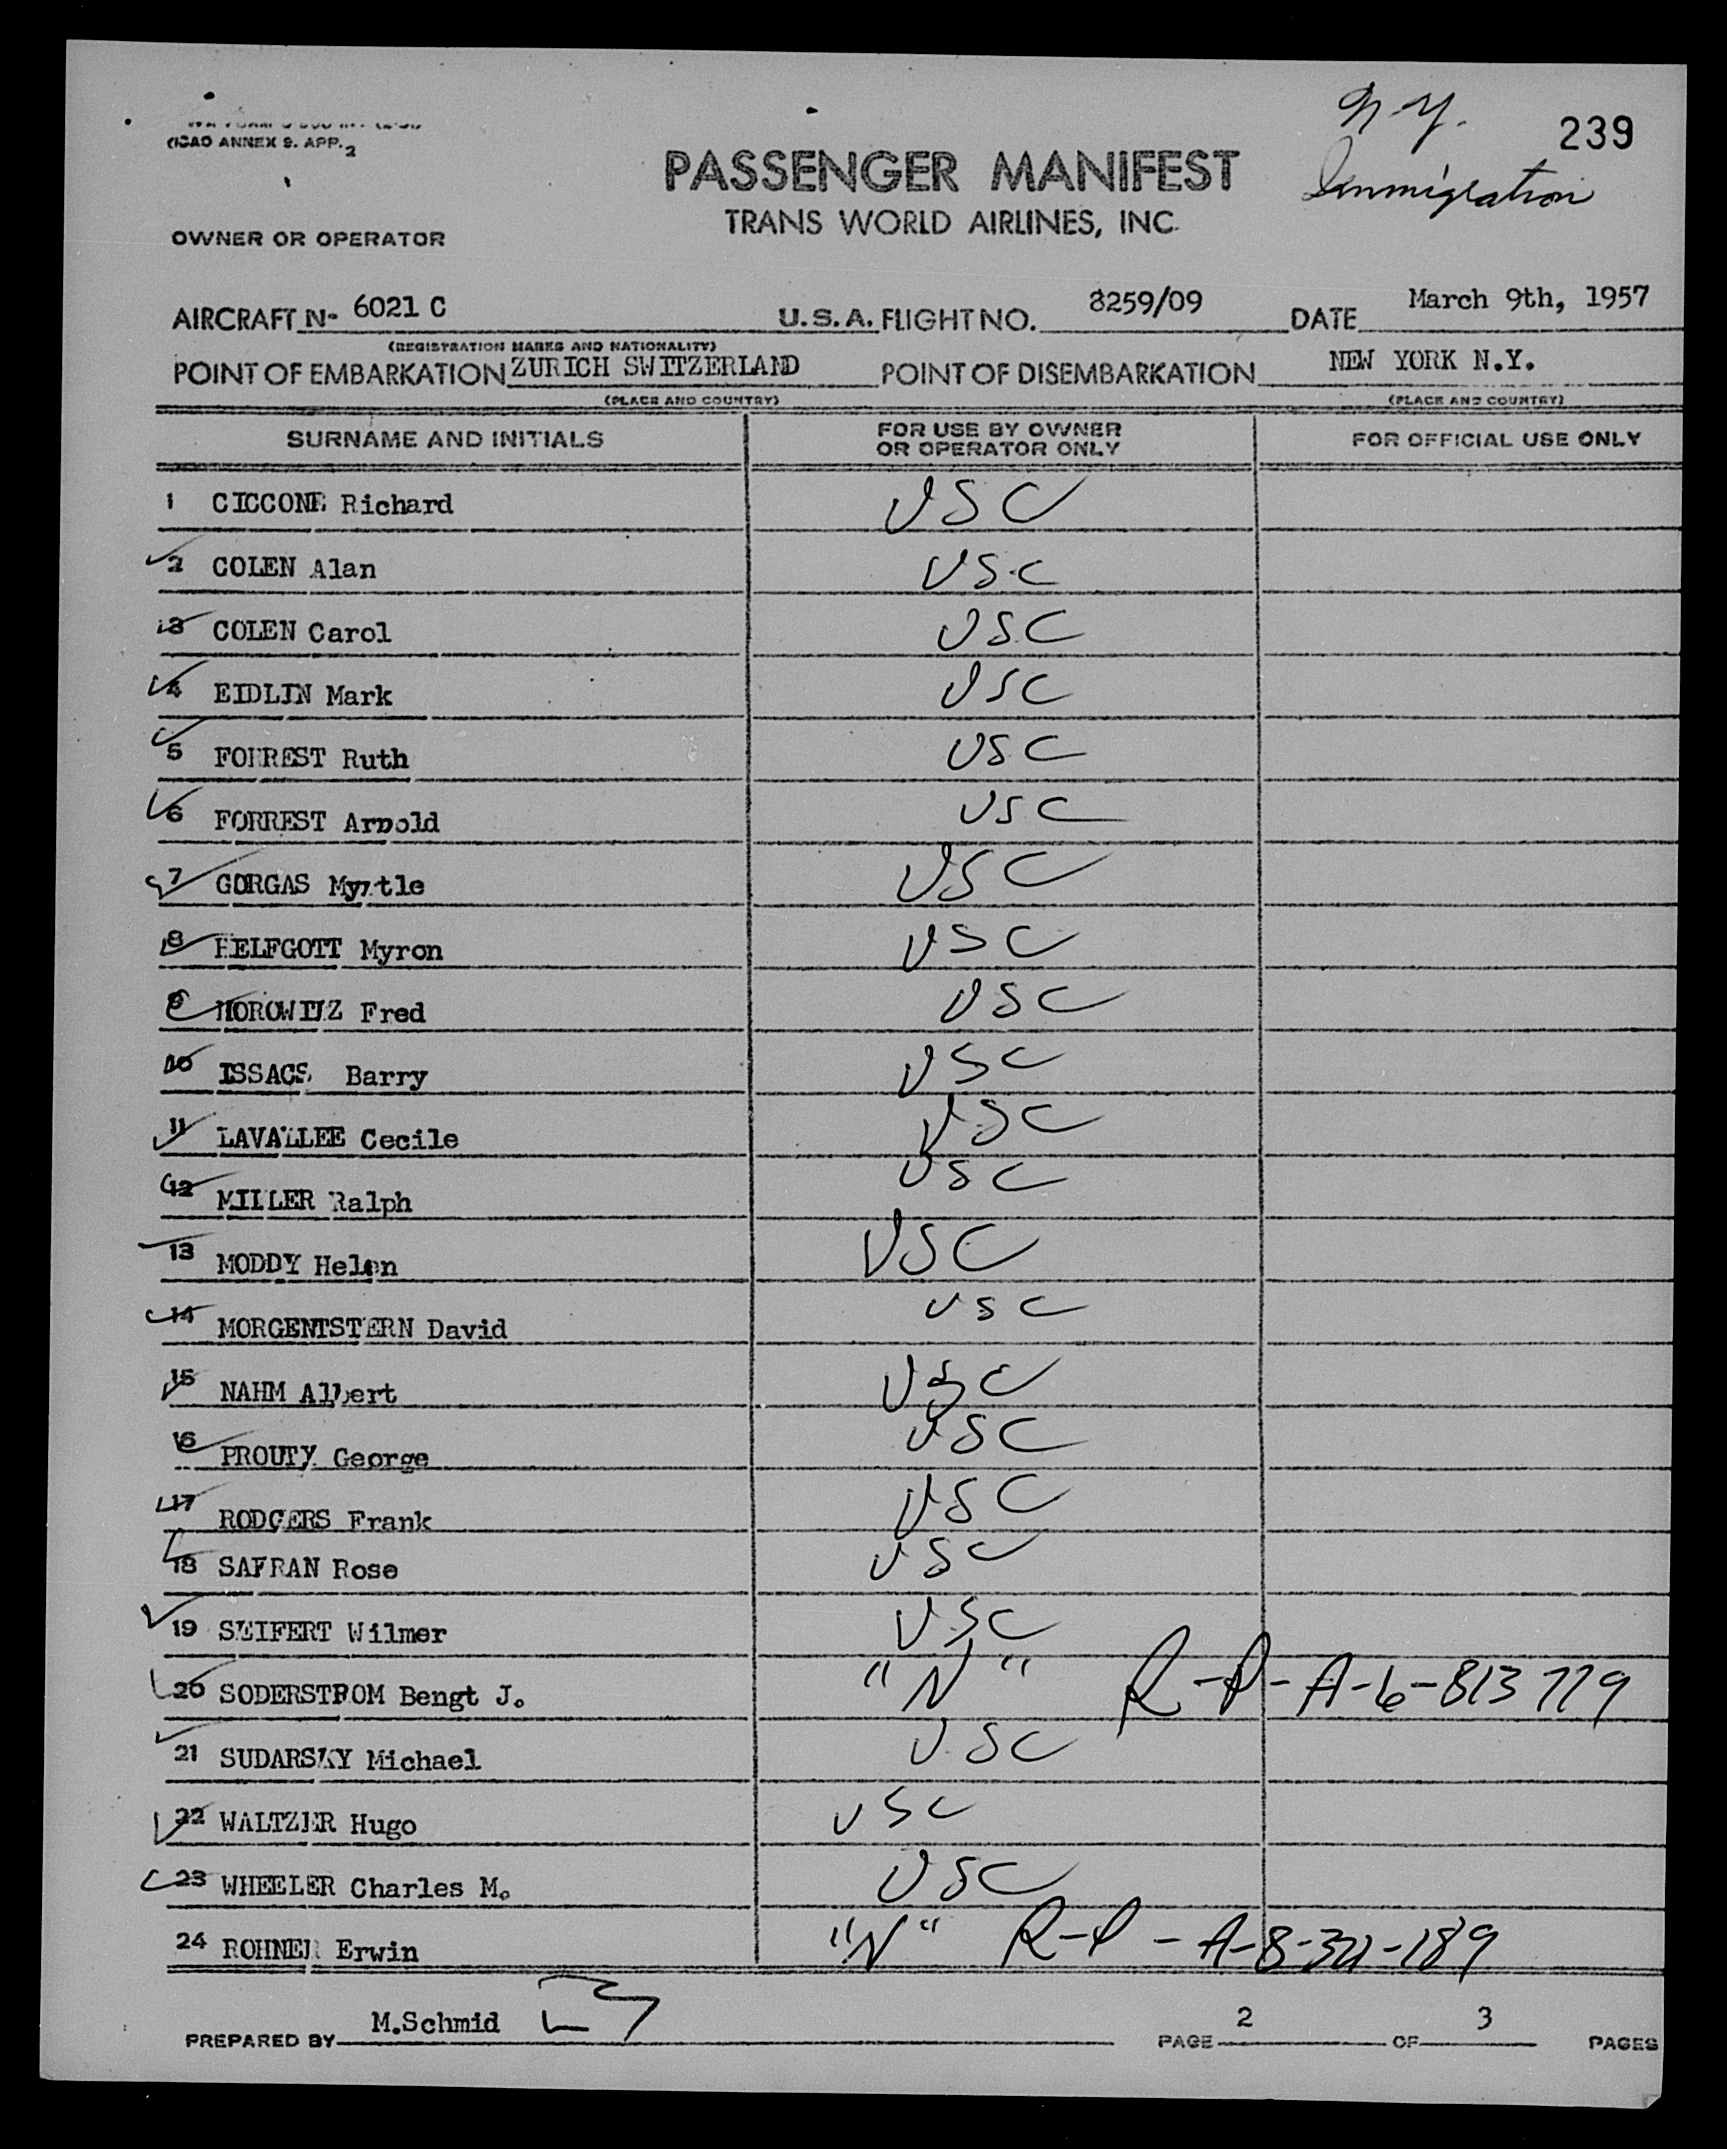 N.Y. 239
(ICAO ANNEX 9. APP. 2
PASSENGER MANIFEST
Immigration
TRANS WORLD AIRLINES, INC.
OWNER OR OPERATOR
AIRCRAFT N- 6021 C U.S.A. FLIGHT NO. 8259/09 DATE March 9th, 1957
(REGISTRATION MARKS AND NATIONALITY)
POINT OF EMBARKATION ZURICH SWITZERLAND POINT OF DISEMBARKATION NEW YORK N.Y.
(PLACE AND COUNTRY) (PLACE AND COUNTRY)
SURNAME AND INITIALS FOR USE BY OWNER OR OPERATOR ONLY FOR OFFICIAL USE ONLY
1 CICCONE Richard USC
2 COLEN Alan USC
3 COLEN Carol USC
4 EIDLIN Mark USC
5 FORREST Ruth USC
6 FORREST Arnold USC
7 GORGAS Myrtle USC
8 HELFGOTT Myron USC
9 HOROWITZ Fred USC
10 ISSACS Barry USC
11 LAVALLEE Cecile USC
12 MILLER Ralph USC
13 MODDY Helen USC
14 MORGENTSTERN David USC
15 NAHM Albert USC
16 PROUTY George USC
17 RODGERS Frank USC
18 SAFRAN Rose USC
19 SEIFERT Wilmer USC
20 SODERSTROM Bengt J. "N" R-P-A-6-813 779
21 SUDARSKY Michael USC
22 WALTZER Hugo USC
23 WHEELER Charles M. USC
24 ROHNER Erwin "N" R-P-A-8-321-189
PREPARED BY M.Schmid PAGE 2 OF 3 PAGES